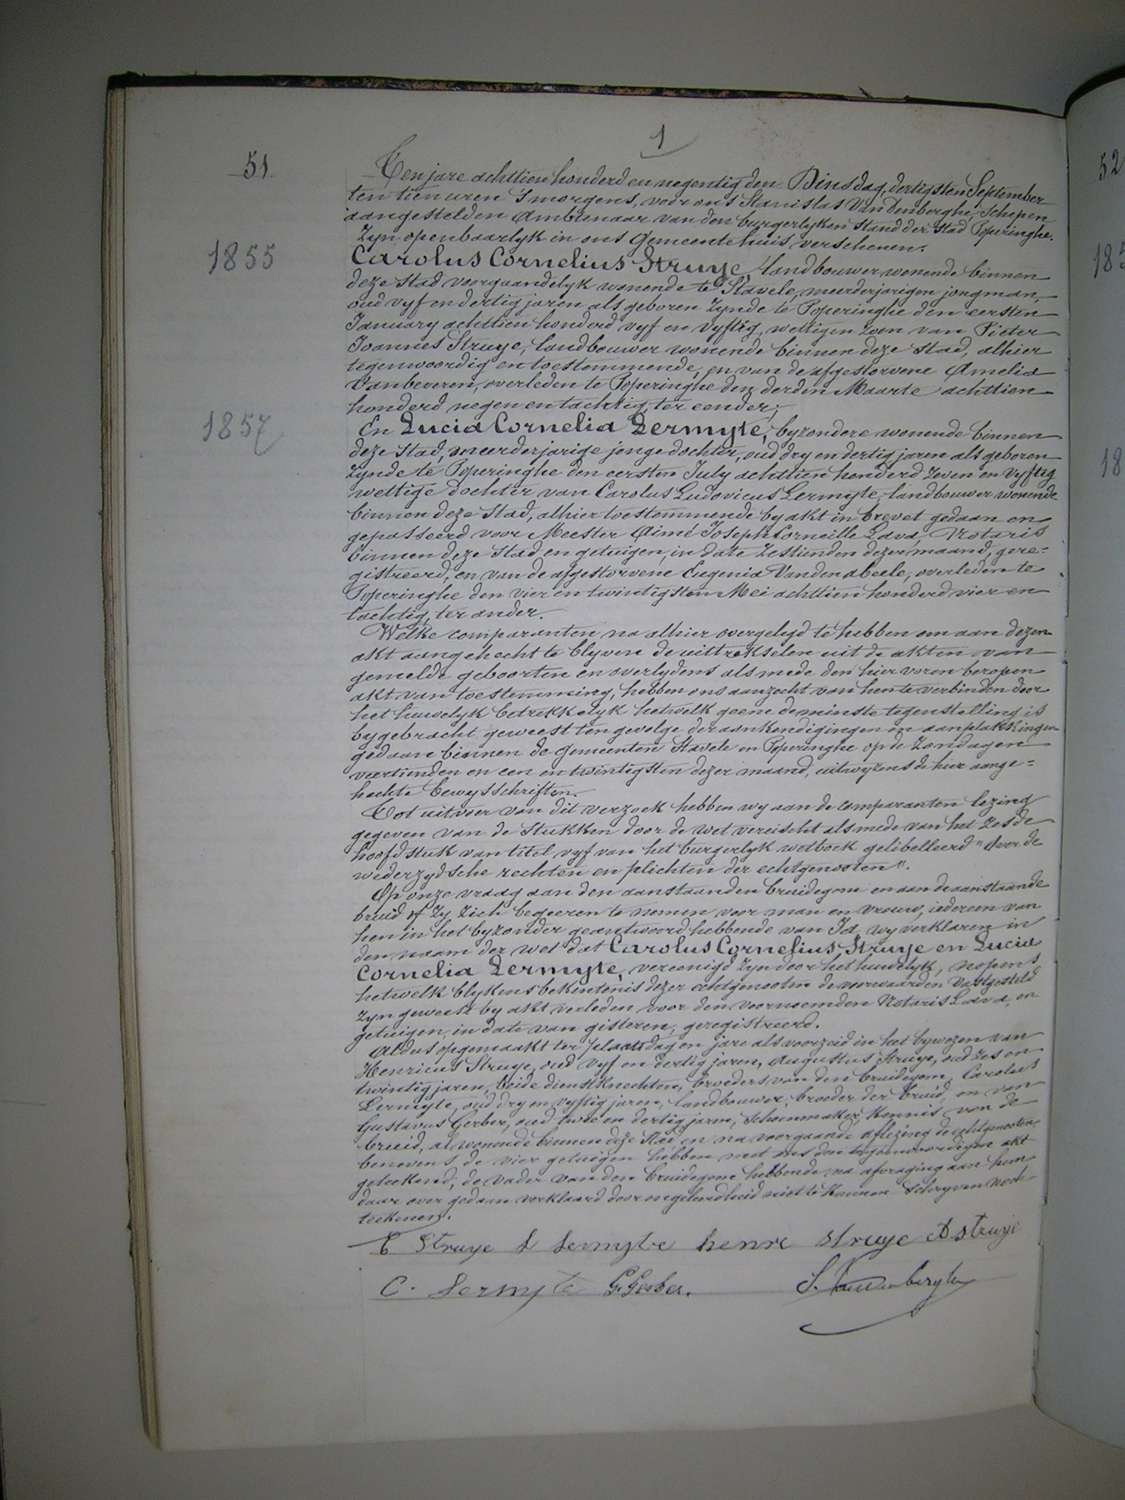 1
51
Ten jare achttien honderd en negentig den Dinsdag, dertigsten September
ten tien uren 's morgens, voor ons Stanislas Vandenberghe, schepen
aangestelden Ambtenaar van den burgerlyken stand der stad Poperinghe.
Zyn openbaarlyk in ons gemeentehuis, verschenen.
1855
Carolus Cornelius Struye, landbouwer wonende binnen
deze stad voorgaandelyk wonende te Stavele, meerderjarigen jongman,
oud vyf en dertig jaren als geboren zynde te Poperinghe den eersten
January achttien honderd vyf en vyftig, wettigen zoon van Pieter
Joannes Struye, landbouwer wonende binnen deze stad, alhier
tegenwoordig en toestemmende, en van de afgestorvene Amelia
Vanbeveren, overleden te Poperinghe den derden Maarte achttien
honderd negen en tachtig, ter eender;
1857
En Lucia Cornelia Lermyte, byzondere wonende binnen
deze stad, meerderjarige jonge dochter, oud dry en dertig jaren als geboren
zynde te Poperinghe den eersten July achttien honderd zeven en vyftig
wettige dochter van Carolus Ludovicus Lermyte, landbouwer wonende
binnen deze stad, alhier toestemmende by akt in brevet gedaan en
gepasseerd voor Meester Aimé Joseph Corneille Lava, Notaris
binnen deze stad en getuigen, in date zestienden dezer maand, gere=
gistreerd, en van de afgestorvene Eugenia Vandenabeele, overleden te
Poperinghe den vier en twintigsten Mei achttien honderd vier en
tachtig, ter ander.
Welke comparanten, na alhier overgelegd te hebben om aan dezen
akt aangehecht te blyven de uittrekselen uit de akten van
gemelde geboorten en overlydens als mede den hier voren beropen
akt van toestemming, hebben ons aanzocht van hen te verbinden door
het huwelyk betrekkelyk hetwelk geene de minste tegenstelling is
bygebracht geweest ten gevolge der aankondigingen en aanplakkingen
gedaan binnen de gemeenten Stavele en Poperinghe op de zondagen
veertienden en een en twintigsten dezer maand, uitwyzens de hier aange=
hechte bewysschriften.
Tot uitvoer van dit verzoek hebben wy aan de comparanten lezing
gegeven van de stukken door de wet vereischt als mede van het zesde
hoofdstuk van titel vyf van het burgerlyk wetboek gelibelleerd "Over de
wederzydsche rechten en plichten der echtgenooten".
Op onze vraag aan den aanstaanden bruidegom en aan de aanstaande
bruid of zy zich begeeren te nemen voor man en vrouw, iedereen van
hen in het byzonder geantwoord hebbende van Ja, wy verklaren in
den naam der wet dat Carolus Cornelius Struye en Lucia
Cornelia Lermyte, vereenigd zyn door het huwelyk, nopens
hetwelk blykens bekentenis dezer echtgenooten de voorwaarden vastgesteld
zyn geweest by akt verleden voor den voornoemden Notaris Lava, en
getuigen, in date van gisteren, geregistreerd.
Aldus opgemaakt ter plaats dag en jare als voorzeid in het bywezen van
Henricus Struye, oud vyf en dertig jaren, Augustus Struye, oud zes en
twintig jaren, beide dienstknechten, broeders van den bruidegom, Carolus
Lermyte, oud dry en vyftig jaren, landbouwer, broeder der bruid, en van
Gustavus Gerber, oud twee en dertig jaren, schoenmaker, kennis van de
bruid, al wonende binnen deze stad en na voorgaande aflezing de echtgenooten
benevens de vier getuigen hebben met ons den tegenwoordigen akt
geteekend, de vader van den bruidegom hebbende na afvraging aan hem
daar over gedaan verklaard door ongeleerdheid niet te kunnen schryven noch
teekenen.
C Struye L Lermyte henri Struye A Struye
C. Lermyte G. Gerber. S. Vandenberghe
52
185
18